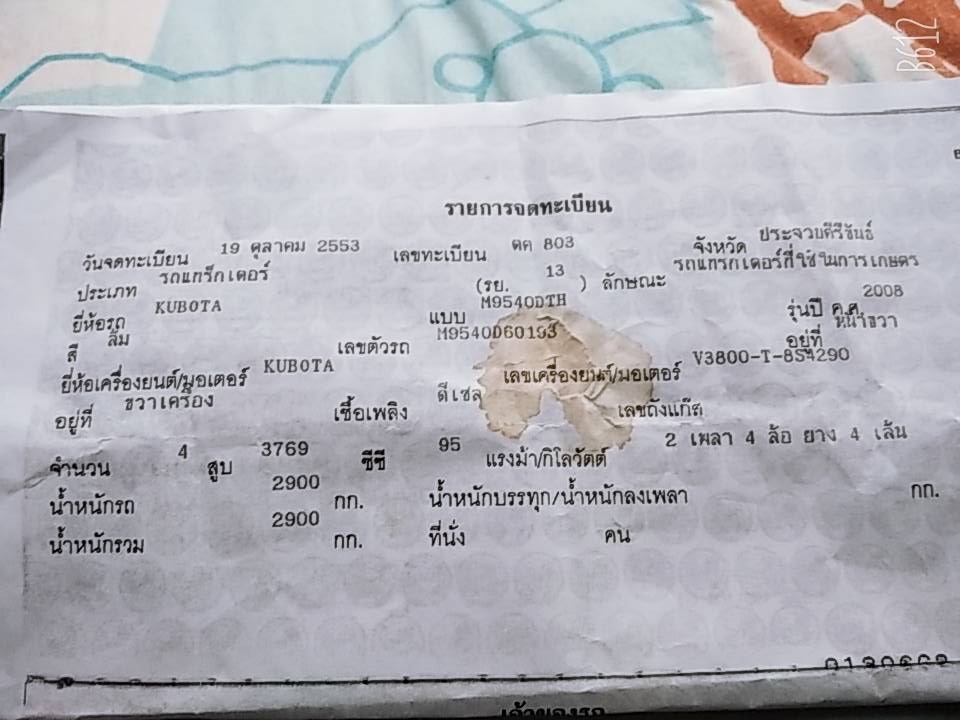 B612
รายการจดทะเบียน
วันจดทะเบียน 19 ตุลาคม 2553 เลขทะเบียน ตค 803 จังหวัด ประจวบคีรีขันธ์
ประเภท รถแทร็กเตอร์ (รย. 13 ) ลักษณะ รถแทรกเตอร์ที่ใช้ในการเกษตร
ยี่ห้อรถ KUBOTA แบบ M9540DTH รุ่นปี ค.ศ. 2008
สี ส้ม เลขตัวรถ M9540D60193 อยู่ที่ หน้าขวา
ยี่ห้อเครื่องยนต์/มอเตอร์ KUBOTA เลขเครื่องยนต์/มอเตอร์ V3800-T-8S4290
อยู่ที่ ขวาเครื่อง เชื้อเพลิง ดีเซล เลขถังแก๊ส
จำนวน 4 สูบ 3769 ซีซี 95 แรงม้า/กิโลวัตต์ 2 เพลา 4 ล้อ ยาง 4 เส้น
น้ำหนักรถ 2900 กก. น้ำหนักบรรทุก/น้ำหนักลงเพลา กก.
น้ำหนักรวม 2900 กก. ที่นั่ง คน
เจ้าของรถ